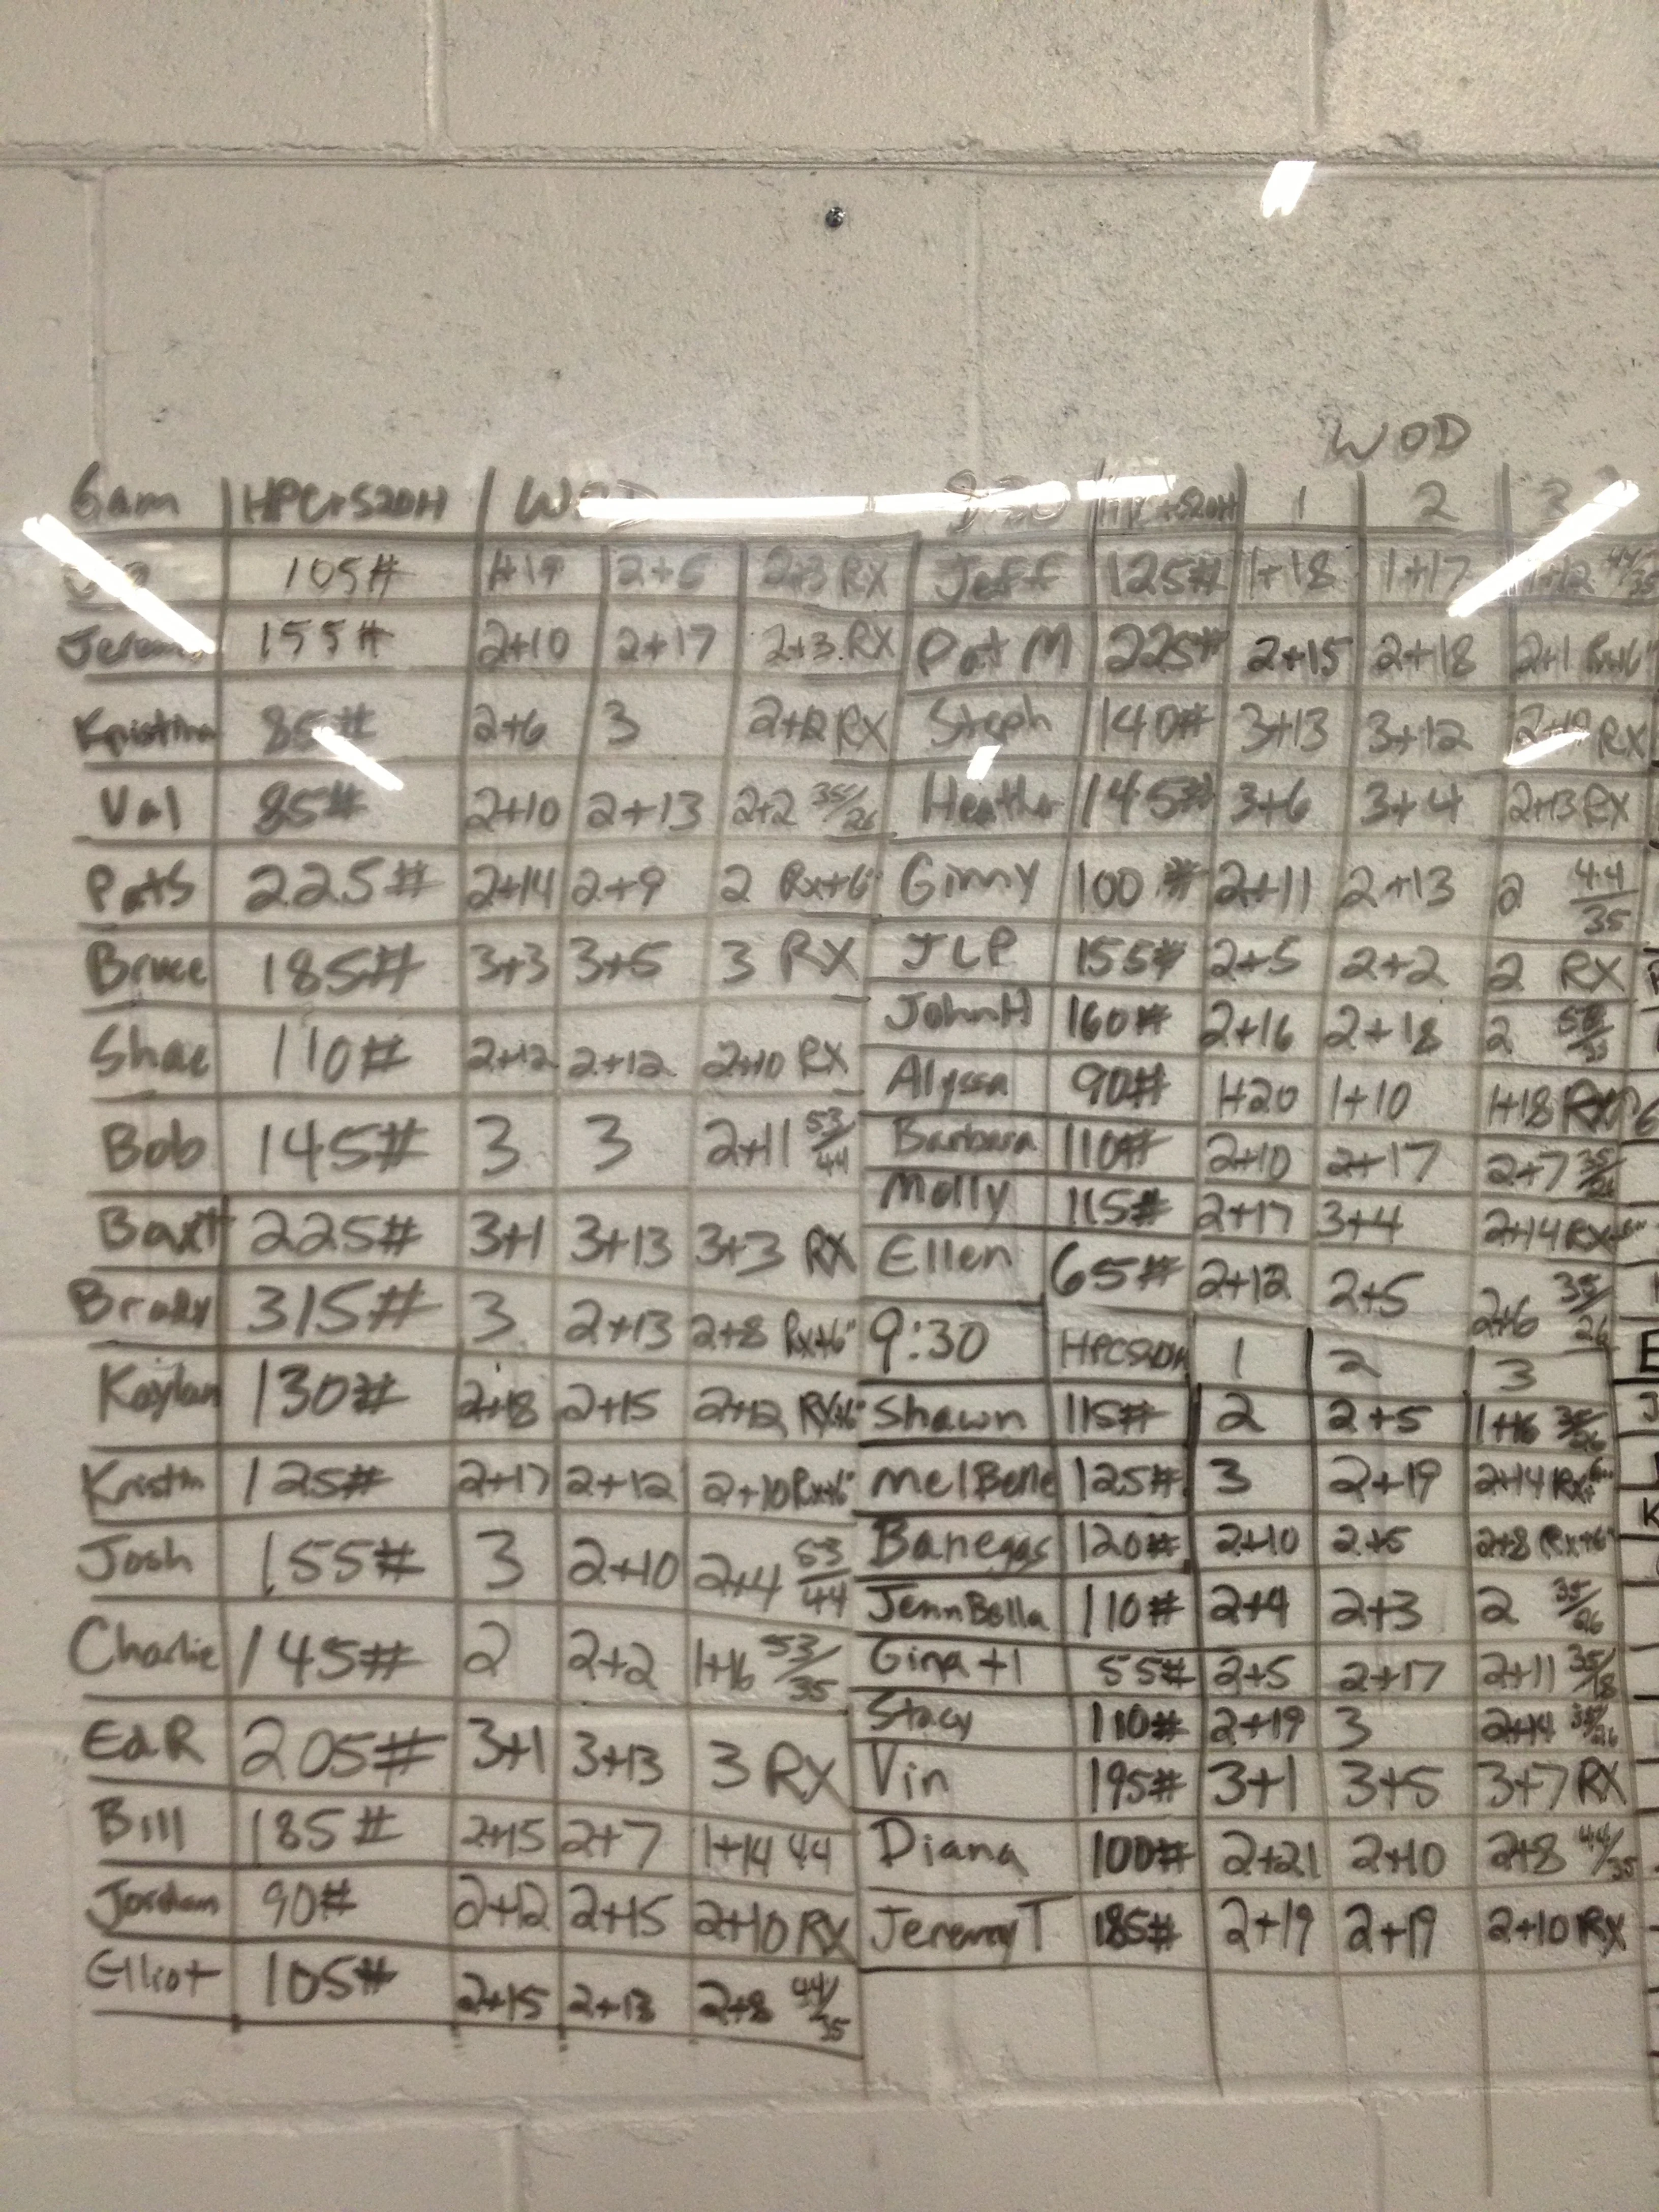 WOD
6am HPC+S2OH WOD
105# 1+19 2+6 2+3 RX
155# 2+10 2+17 2+3 RX
Kristina 85# 2+6 3 2+12 RX
Val 85# 2+10 2+13 2+2 35/26
PatS 225# 2+14 2+9 2 Rx+6"
Bruce 185# 3+3 3+5 3 RX
Shae 110# 2+12 2+12 2+10 RX
Bob 145# 3 3 2+11 53/44
Baxt 225# 3+1 3+13 3+3 RX
Brady 315# 3 2+13 2+8 Rx+6"
Kaylan 130# 2+18 2+15 2+12 RX+6"
Kristin 125# 2+17 2+12 2+10 Rx+6"
Josh 155# 3 2+10 2+4 53/44
Charlie 145# 2 2+2 1+16 53/35
EdR 205# 3+1 3+13 3 RX
Bill 185# 2+15 2+7 1+14 44
Jordan 90# 2+12 2+15 2+10 RX
Elliot 105# 2+15 2+13 2+8 44/35
8:30 HPC+S2OH 1 2 3
Jeff 125# 1+18 1+17 1+12 44/35
Pat M 225# 2+15 2+18 2+1 Rx+6"
Steph 140# 3+13 3+12 RX
Heather 145# 3+6 3+4 2+13 RX
Ginny 100# 2+11 2+13 2 44/35
JLP 155# 2+5 2+2 2 RX
JohnH 160# 2+16 2+18 2
Alyssa 90# 1+20 1+10 1+18
Barbara 110# 2+10 2+17 2+7 35/26
Molly 115# 2+17 3+4 2+14 RX+6"
Ellen 65# 2+12 2+5 2+6 35/26
9:30 HPCS2OH 1 2 3
Shawn 115# 2 2+5 1+16 35/26
MelBelle 125# 3 2+19 2+14 Rx+6"
Banegas 120# 2+10 2+5 2+8 Rx+6"
JennBella 110# 2+4 2+3 2 35/26
Gina+1 55# 2+5 2+17 2+11 35/18
Stacy 110# 2+19 3 2+14 35/26
Vin 195# 3+1 3+5 3+7 RX
Diana 100# 2+21 2+10 2+8 44/35
JeremyT 185# 2+19 2+19 2+10 RX